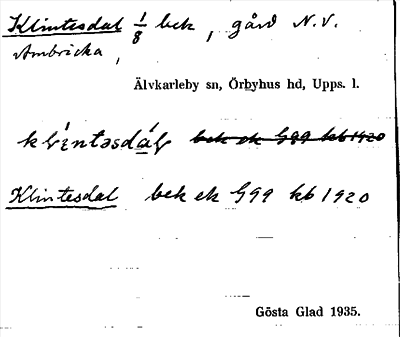 Klintesdal 1/8 bek, gård N.V.
Ambricka,
Älvkarleby sn, Örbyhus hd, Upps. l.
klìntəsdá̱l bek ek G99 kb 1920
Klintesdal bek ek G99 kb 1920
Gösta Glad 1935.